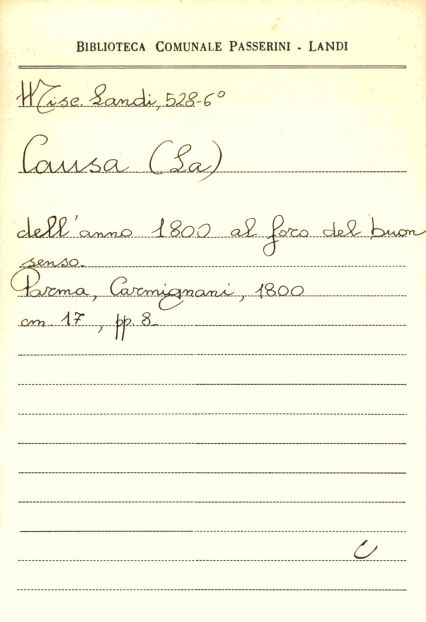 BIBLIOTECA COMUNALE PASSERINI - LANDI
Misc. Landi, 528-6°
Causa (La)
dell'anno 1800 al foro del buon
senso.
Parma, Carmignani, 1800
cm. 17, pp. 8-
C